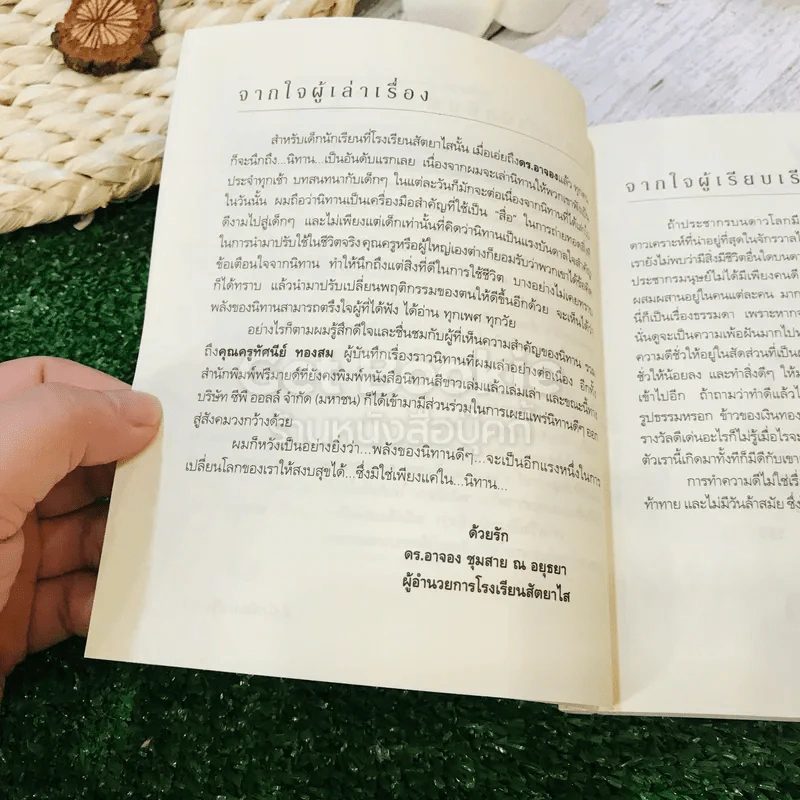 จากใจผู้เล่าเรื่อง
สำหรับเด็กนักเรียนที่โรงเรียนสัตยาไสนั้น เมื่อเอ่ยถึงดร.อาจองแล้ว
ก็จะนึกถึง...นิทาน...เป็นอันดับแรกเลย เนื่องจากผมจะเล่านิทานให้พวกเขาฟังเป็น
ประจำทุกเช้า บทสนทนากับเด็กๆ ในแต่ละวันก็มักจะต่อเนื่องจากนิทานที่ได้เล่าไป
ในวันนั้น ผมถือว่านิทานเป็นเครื่องมือสำคัญที่ใช้เป็น "สื่อ" ในการถ่ายทอดสิ่งที่
ดีงามไปสู่เด็กๆ และไม่เพียงแต่เด็กเท่านั้นที่คิดว่านิทานเป็นแรงบันดาลใจสำคัญ
ในการนำมาปรับใช้ในชีวิตจริง คุณครูหรือผู้ใหญ่เองต่างก็ยอมรับว่าพวกเขาได้ข้อคิด
ข้อเตือนใจจากนิทาน ทำให้นึกถึงแต่สิ่งที่ดีในการใช้ชีวิต บางอย่างไม่เคยทราบ
ก็ได้ทราบ แล้วนำมาปรับเปลี่ยนพฤติกรรมของตนให้ดีขึ้นอีกด้วย จะเห็นได้ว่า
พลังของนิทานสามารถตรึงใจผู้ที่ได้ฟัง ได้อ่าน ทุกเพศ ทุกวัย
อย่างไรก็ตามผมรู้สึกดีใจและชื่นชมกับผู้ที่เห็นความสำคัญของนิทาน รวม
ถึงคุณครูทัศนีย์ ทองสม ผู้บันทึกเรื่องราวนิทานที่ผมเล่าอย่างต่อเนื่อง อีกทั้ง
สำนักพิมพ์ฟรีมายด์ที่ยังคงพิมพ์หนังสือนิทานสีขาวเล่มแล้วเล่มเล่า และขณะนี้ทาง
บริษัท ซีพี ออลล์ จำกัด (มหาชน) ก็ได้เข้ามามีส่วนร่วมในการเผยแพร่นิทานดีๆ ออก
สู่สังคมวงกว้างด้วย
ผมก็หวังเป็นอย่างยิ่งว่า...พลังของนิทานดีๆ...จะเป็นอีกแรงหนึ่งในการ
เปลี่ยนโลกของเราให้สงบสุขได้...ซึ่งมิใช่เพียงแค่ใน...นิทาน...
ด้วยรัก
ดร.อาจอง ชุมสาย ณ อยุธยา
ผู้อำนวยการโรงเรียนสัตยาไส
ร้านหนังสือบุ๊คกี้
จากใจผู้เรียบเรี
ถ้าประชากรบนดาวโลกมี
ดาวเคราะห์ที่น่าอยู่ที่สุดในจักรวาลไ
เรายังไม่พบว่ามีสิ่งมีชีวิตอื่นใดบนดา
ประชากรมนุษย์ไม่ได้มีเพียงคนดี
ผสมผสานอยู่ในคนแต่ละคน มาก
นี่ก็เป็นเรื่องธรรมดา เพราะหากจ
นั่นดูจะเป็นความเพ้อฝันมากไปห
ความดีชั่วให้อยู่ในสัดส่วนที่เป็น
ชั่วให้น้อยลง และทำสิ่งดีๆ ให้ม
เข้าไปอีก ถ้าถามว่าทำดีแล้วไ
รูปธรรมหรอก ข้าวของเงินทอง
รางวัลดีเด่นอะไรก็ไม่รู้เมื่อไรจะ
ตัวเรานี้เกิดมาทั้งทีก็มีดีกับเขา
การทำความดีไม่ใช่เรื่
ท้าทาย และไม่มีวันล้าสมัย ซึ่ง